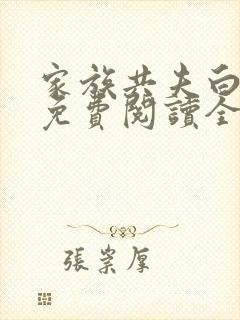 家族共夫白
免費閱讀全
張崇厚